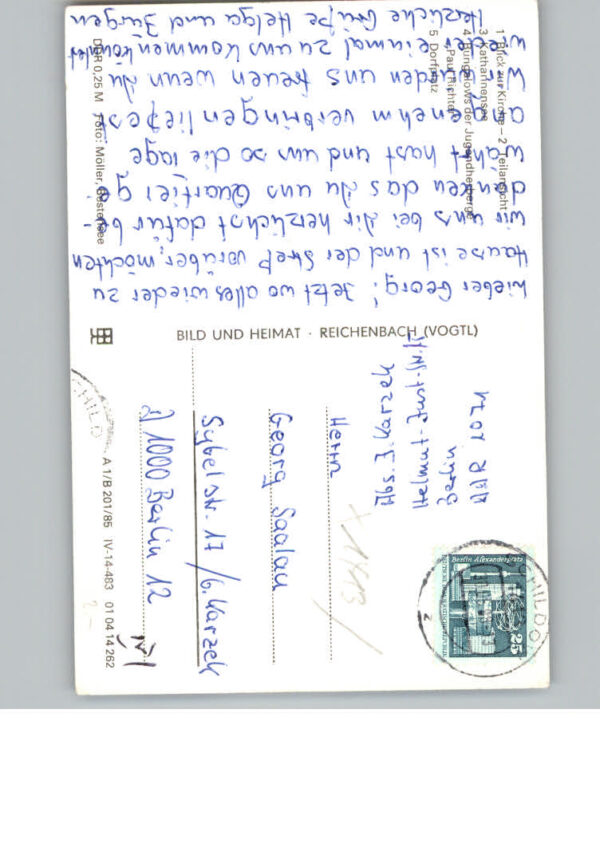 Lieber Georg! Jetzt wo alles wieder zu
Hause ist und der Streß vorüber, möchten
wir uns bei dir herzlichst dafür be-
danken das du uns Quartier ge
währt hast und uns so die Tage
angenehm verbringen ließest
Wir würden uns freuen wenn du
wieder einmal zu uns kommen könntest
Herzliche Grüße Helga und Jürgen
1 Blick zur Kirche – 2 Teilansicht
3 Katharinensee
4 Bungalows der Jugendherberge
„Paul Richter“
5 Dorfplatz
DDR 0,25 M Foto: Möller,
BILD UND HEIMAT · REICHENBACH (VOGTL)
Abs. J. Karzek
Helmut-
Berlin
DDR 1074
Herrn
Georg Saalau
Sybelstr. 17 / G. Karzek
1000 Berlin 12
A 1/B 201/85 IV-14-483 01 04 14 262
Berlin, Alexanderplatz
25